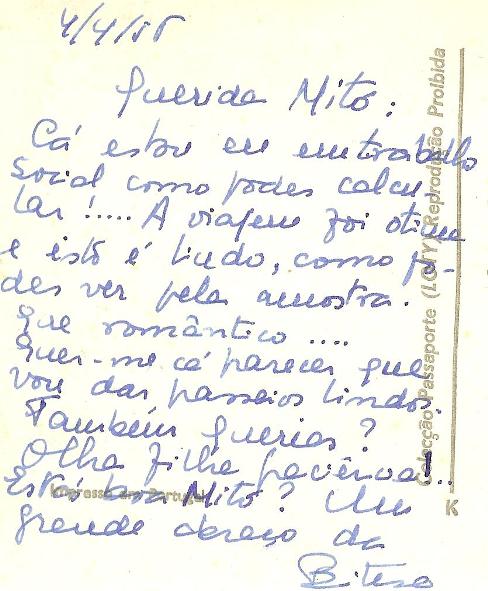 4/4/55
Querida Mitó:
Cá estou eu em trabalho
social como podes calcu-
lar!..... A viagem foi otima
e isto é lindo, como po-
des ver pela amostra.
Que romântico ....
Quer-me cá parecer que
vou dar passeios lindos.
Também querias?
Olha filha paciência...
Está boa Mitó? Um
grande abraço da
Colecção Passaporte (LOTY) Reprodução Proibida
Impresso em Portugal
K